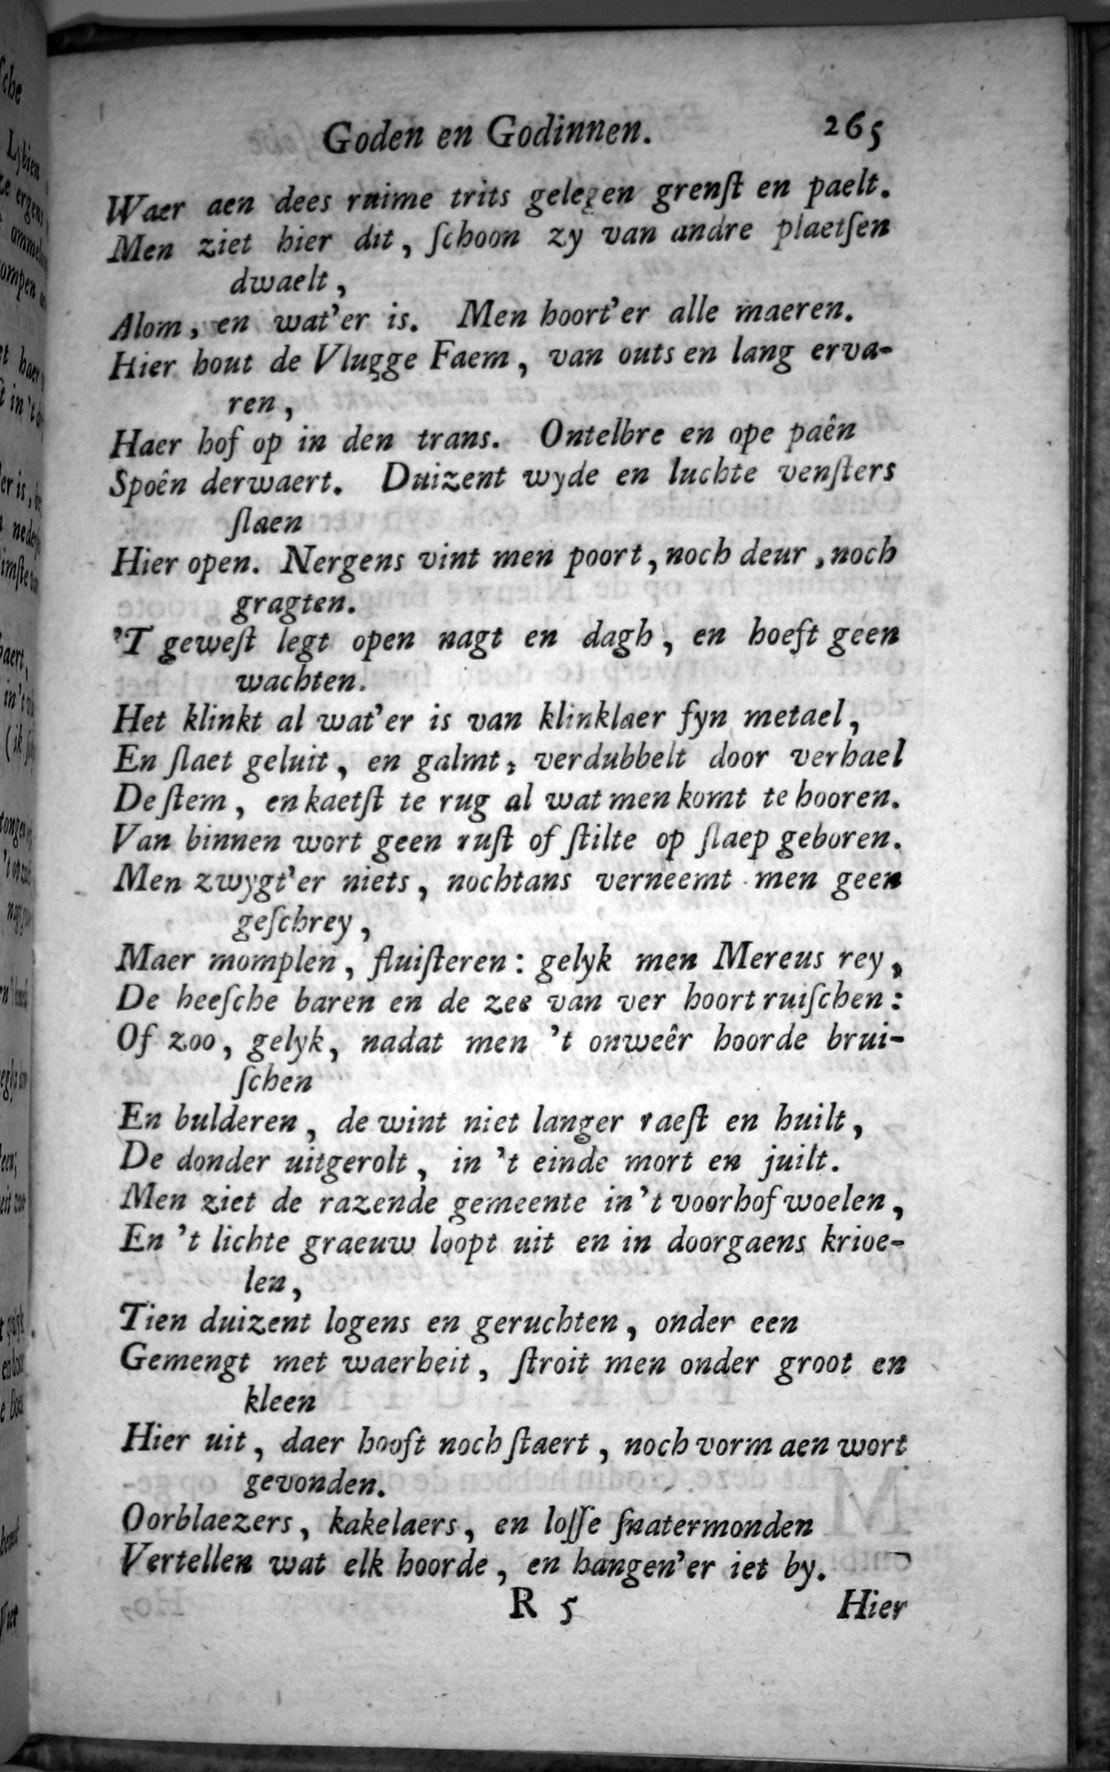 Goden en Godinnen. 265
Waer aen dees ruime trits gelegen grenſt en paelt.
Men ziet hier dit, ſchoon zy van andre plaetſen
dwaelt,
Alom, en wat'er is. Men hoort'er alle maeren.
Hier hout de Vlugge Faem, van outs en lang erva-
ren,
Haer hof op in den trans. Ontelbre en ope paên
Spoên derwaert. Duizent wyde en luchte venſters
ſlaen
Hier open. Nergens vint men poort, noch deur, noch
gragten.
'T geweſt legt open nagt en dagh, en hoeft geen
wachten.
Het klinkt al wat'er is van klinklaer fyn metael,
En ſlaet geluit, en galmt, verdubbelt door verhael
De ſtem, en kaetſt te rug al wat men komt te hooren.
Van binnen wort geen ruſt of ſtilte op ſlaep geboren.
Men zwygt'er niets, nochtans verneemt men geen
geſchrey,
Maer momplen, fluiſteren: gelyk men Mereus rey,
De heeſche baren en de zee van ver hoort ruiſchen:
Of zoo, gelyk, nadat men 't onweêr hoorde brui-
ſchen
En bulderen, de wint niet langer raeſt en huilt,
De donder uitgerolt, in 't einde mort en juilt.
Men ziet de razende gemeente in 't voorhof woelen,
En 't lichte graeuw loopt uit en in doorgaens krioe-
len,
Tien duizent logens en geruchten, onder een
Gemengt met waerheit, ſtroit men onder groot en
kleen
Hier uit, daer hooft noch ſtaert, noch vorm aen wort
gevonden.
Oorblaezers, kakelaers, en loſſe ſnatermonden
Vertellen wat elk hoorde, en hangen'er iet by.
R 5 Hier